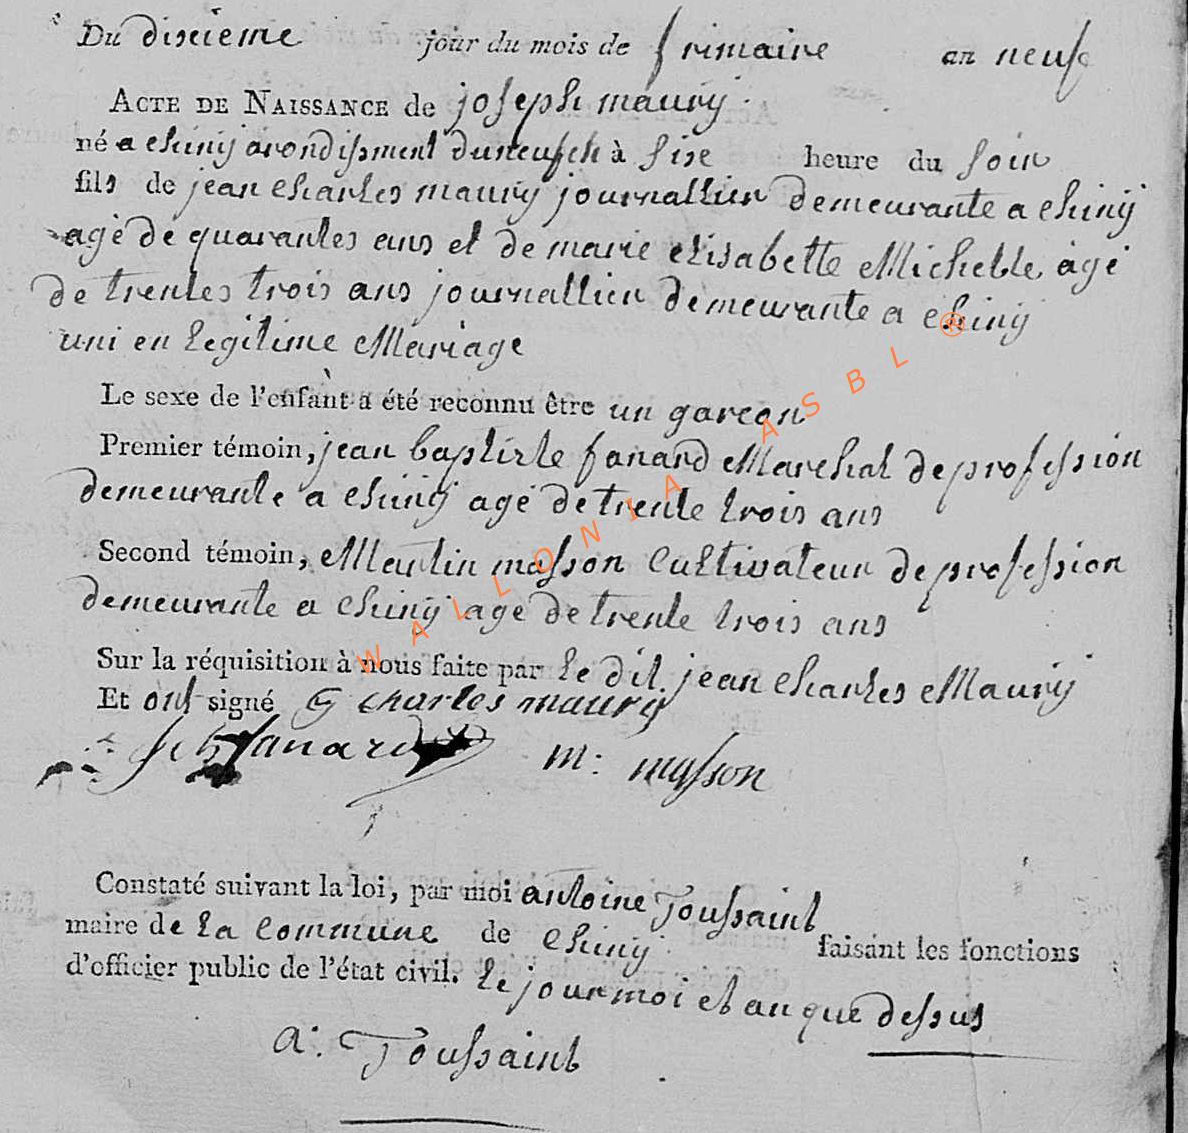 Du dixieme jour du mois de frimaire an neuf
ACTE DE NAISSANCE de joseph maury
né a chiny arondissment duneufch à sixe heure du soir
fils de jean charles maury journallier demeurante a chiny
agè de quarantes ans et de marie elisabette Michelle àgé
de trentes trois ans journallier demeurante a chiny
uni en legitime Mariage
Le sexe de l'enfant a été reconnu être un garçon
Premier témoin, jean baptiste fanard Marchal de profession
demeurante a chiny agé de trente trois ans
Second témoin, Martin masson Cultivateur de profession
demeurante a chiny agé de trente trois ans
Sur la réquisition à nous faite par le dit jean charles Maury
Et ont signé charles maury
fanard m: masson
Constaté suivant la loi, par moi antoine Toussaint
maire de la commune de chiny faisant les fonctions
d'officier public de l'état civil. le jour moi et an que dessus
a: Toussaint
WALLONIA ASBL ®